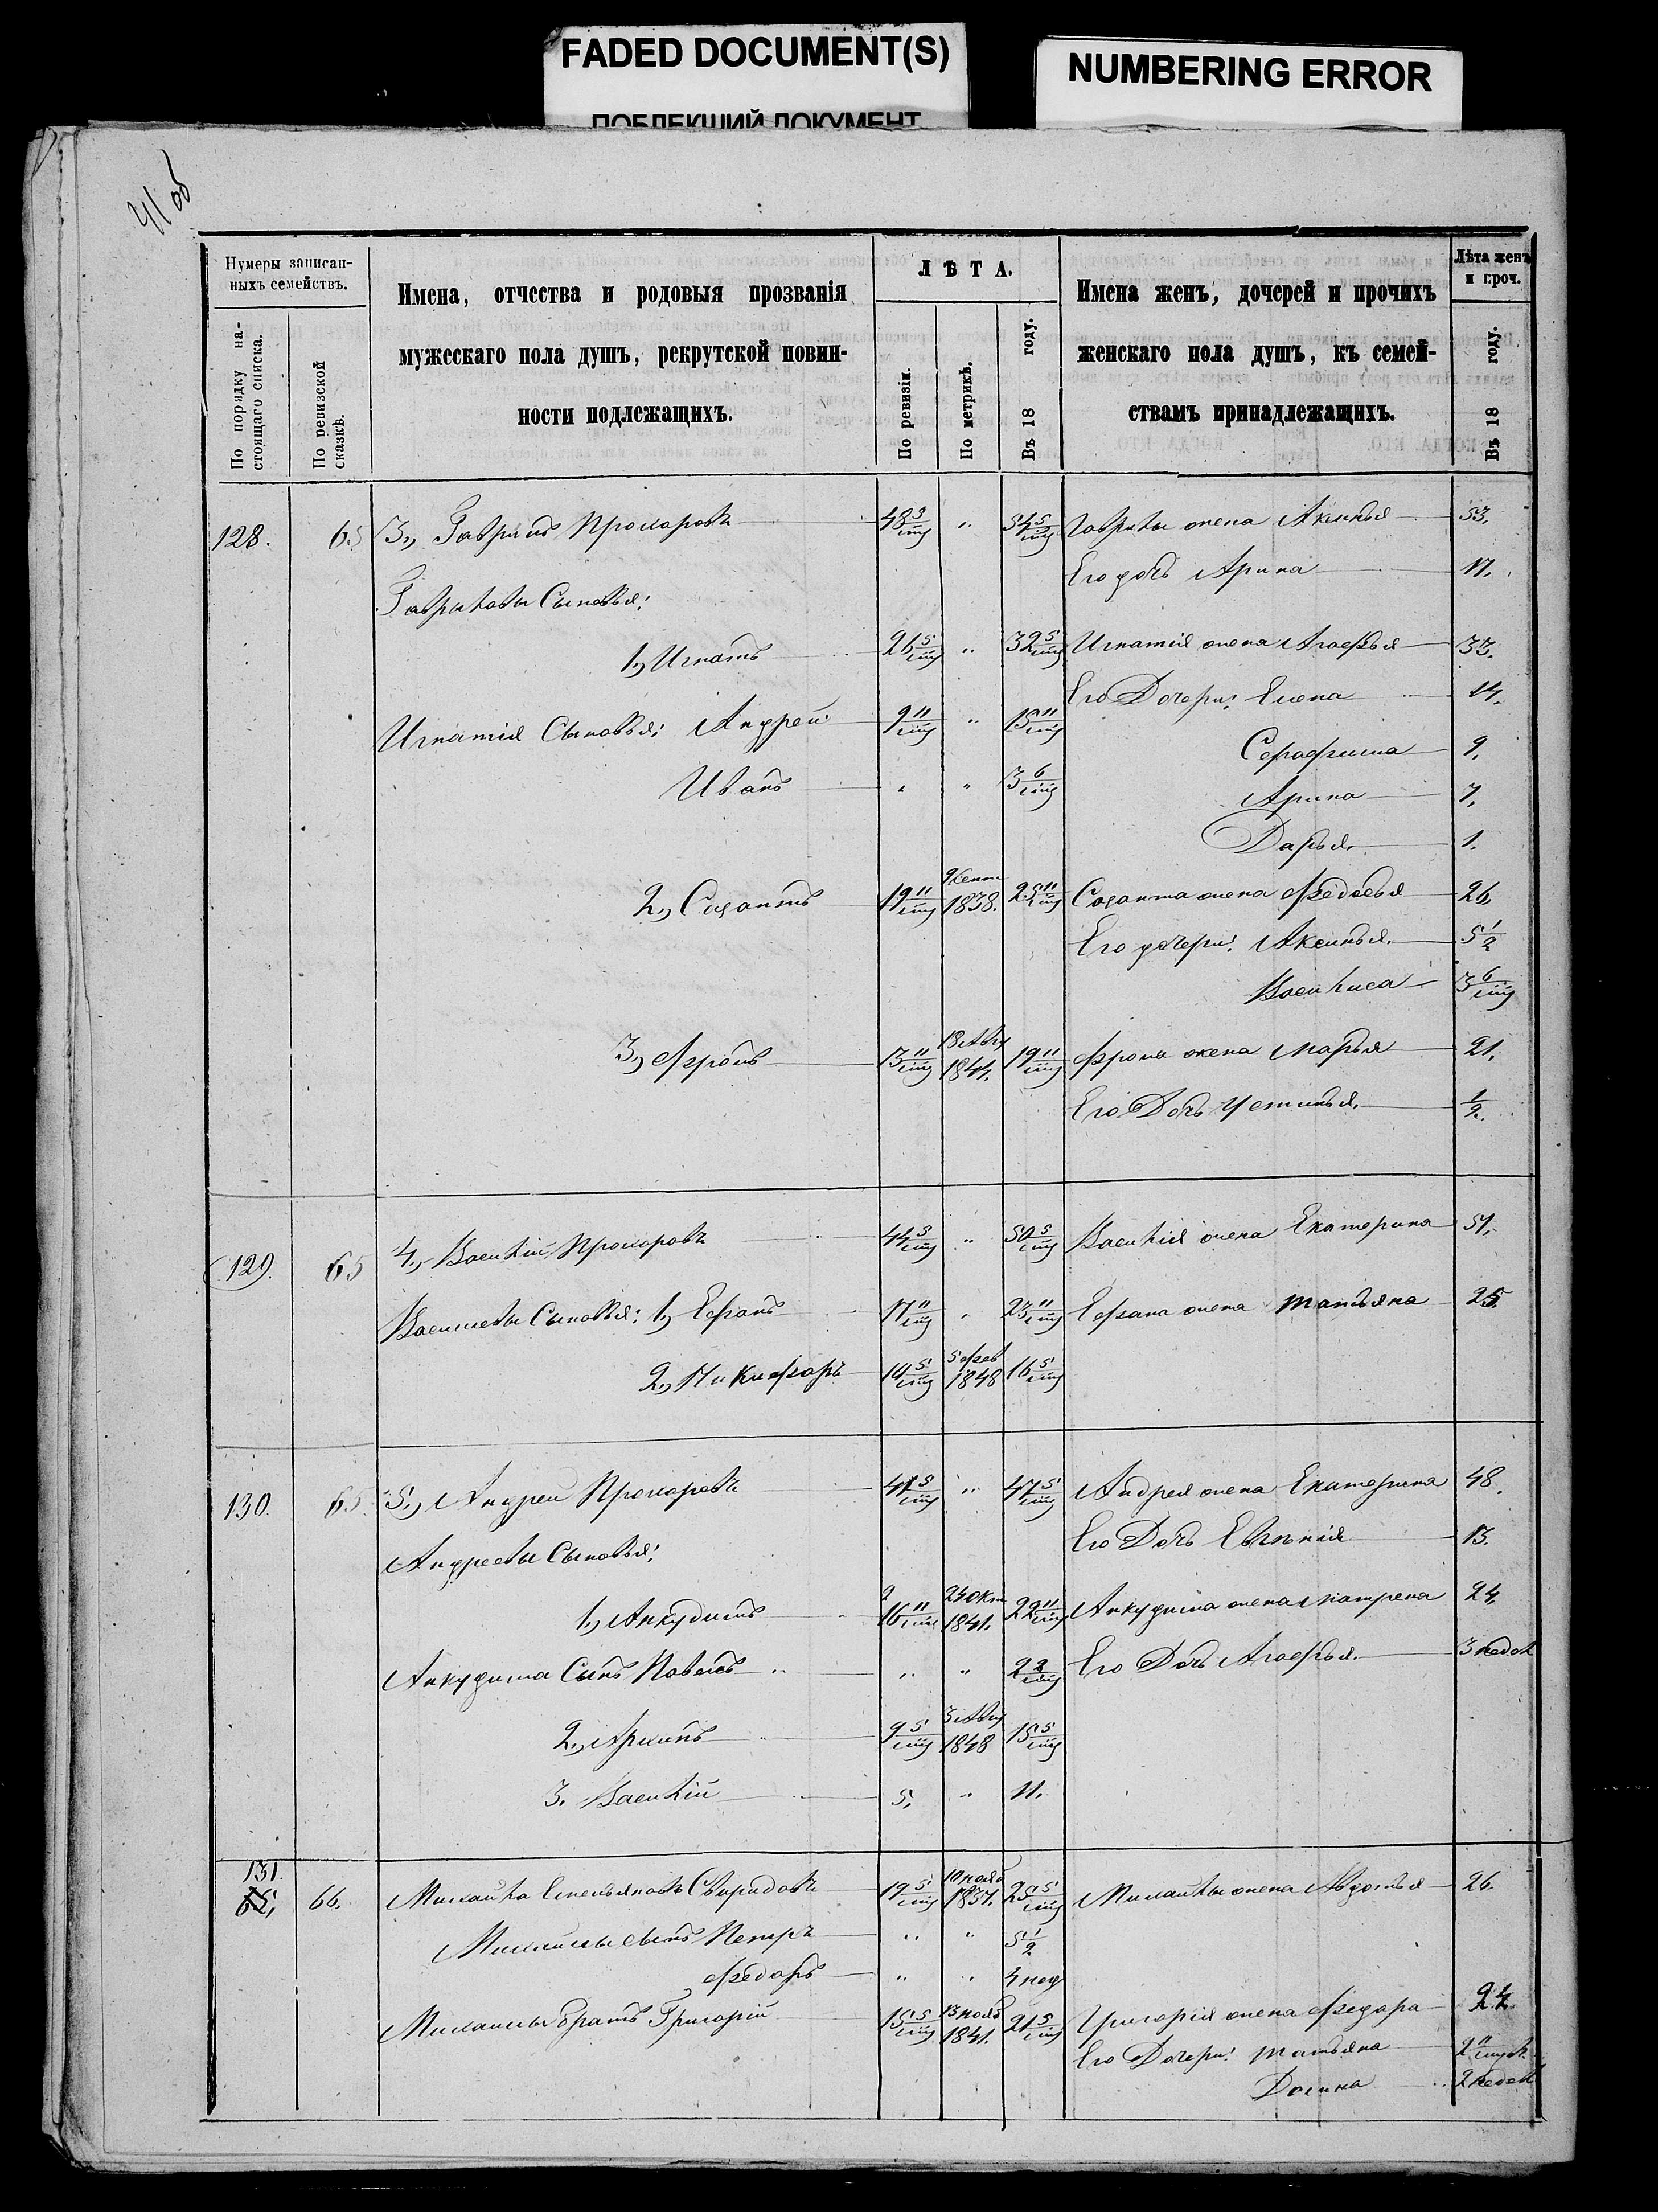 FADED DOCUMENT(S)
ПОБЛЕКШИЙ ДОКУМЕНТ
NUMBERING ERROR
41 об
Нумеры записан-
ныхъ семействъ.
По порядку на-
стоящаго списка.
По ревизской
сказкѣ.
Имена, отчества и родовыя прозванія
мужескаго пола душъ, рекрутской повин-
ности подлежащихъ.
ЛѢТА.
По ревизіи.
По метрикѣ.
Въ 18 году.
Имена женъ, дочерей и прочихъ
женскаго пола душъ, къ семей-
ствамъ принадлежащихъ.
Лѣта женъ
и проч.
Въ 18 году.
128. 65 3., Прохоровъ 48 5/ 54 5/ жена 53.
Его дочь Арина 17.
Сыновья:
1., Игнатъ 26 5/ 32 5/ Игнатія жена Агафья 33.
Его Дочери: Елена 14.
Игнатія Сыновья: Андрей 9 11/ 15 11/
Серафима 9.
Иванъ 3 6/
Арина 7.
Дарья. 1.
2., Созантъ 19 11/ 1838. 25 11/ Созанта жена Федосья 26.
Его дочери: Аксинья. 5 1/2
Василиса 3 6/
3., Фролъ 13 11/ 18 Авгу 1844. 19 11/ Фрола жена Марья 21.
Его Дочь Устинья. 1/2.
129. 65 4., Василій Прохоровъ 44 5/ 50 5/ Василія жена Екатерина 51.
Васильевы Сыновья: 1., 17 11/ 23 11/ жена Татьяна 25.
2., Никифоръ 10 5/ 5 фев 1848 16 5/
130. 65. 5., Андрей Прохоровъ 41 5/ 47 5/ Андрея жена Екатерина 48.
Его Дочь Евгенія 13.
Андреевы Сыновья:
1., Анкудимъ 16 11/ 24 окт 1841. 22 11/ Анкудима жена Матрена 24.
Анкудима Сынъ Павелъ 2 3/ Его Дочь Агафья. 3 недѣл
2., Архипъ 9 5/ 3 Авгу 1848 15 5/
3. Василій 5. 11.
131.
66. Михайла Емельяновъ Свиридовъ 19 5/ 10 нояб 25 5/ Михайлы жена Авдотья 26.
Михайлы сынъ Петръ 5 1/2
Федоръ 4 нед
Михайлы братъ Григорій 15 5/ 13 нояб 1841. 21 5/ Григорія жена Федора 24.
Его Дочери: Татьяна 2 11/
Домна 2 недѣл